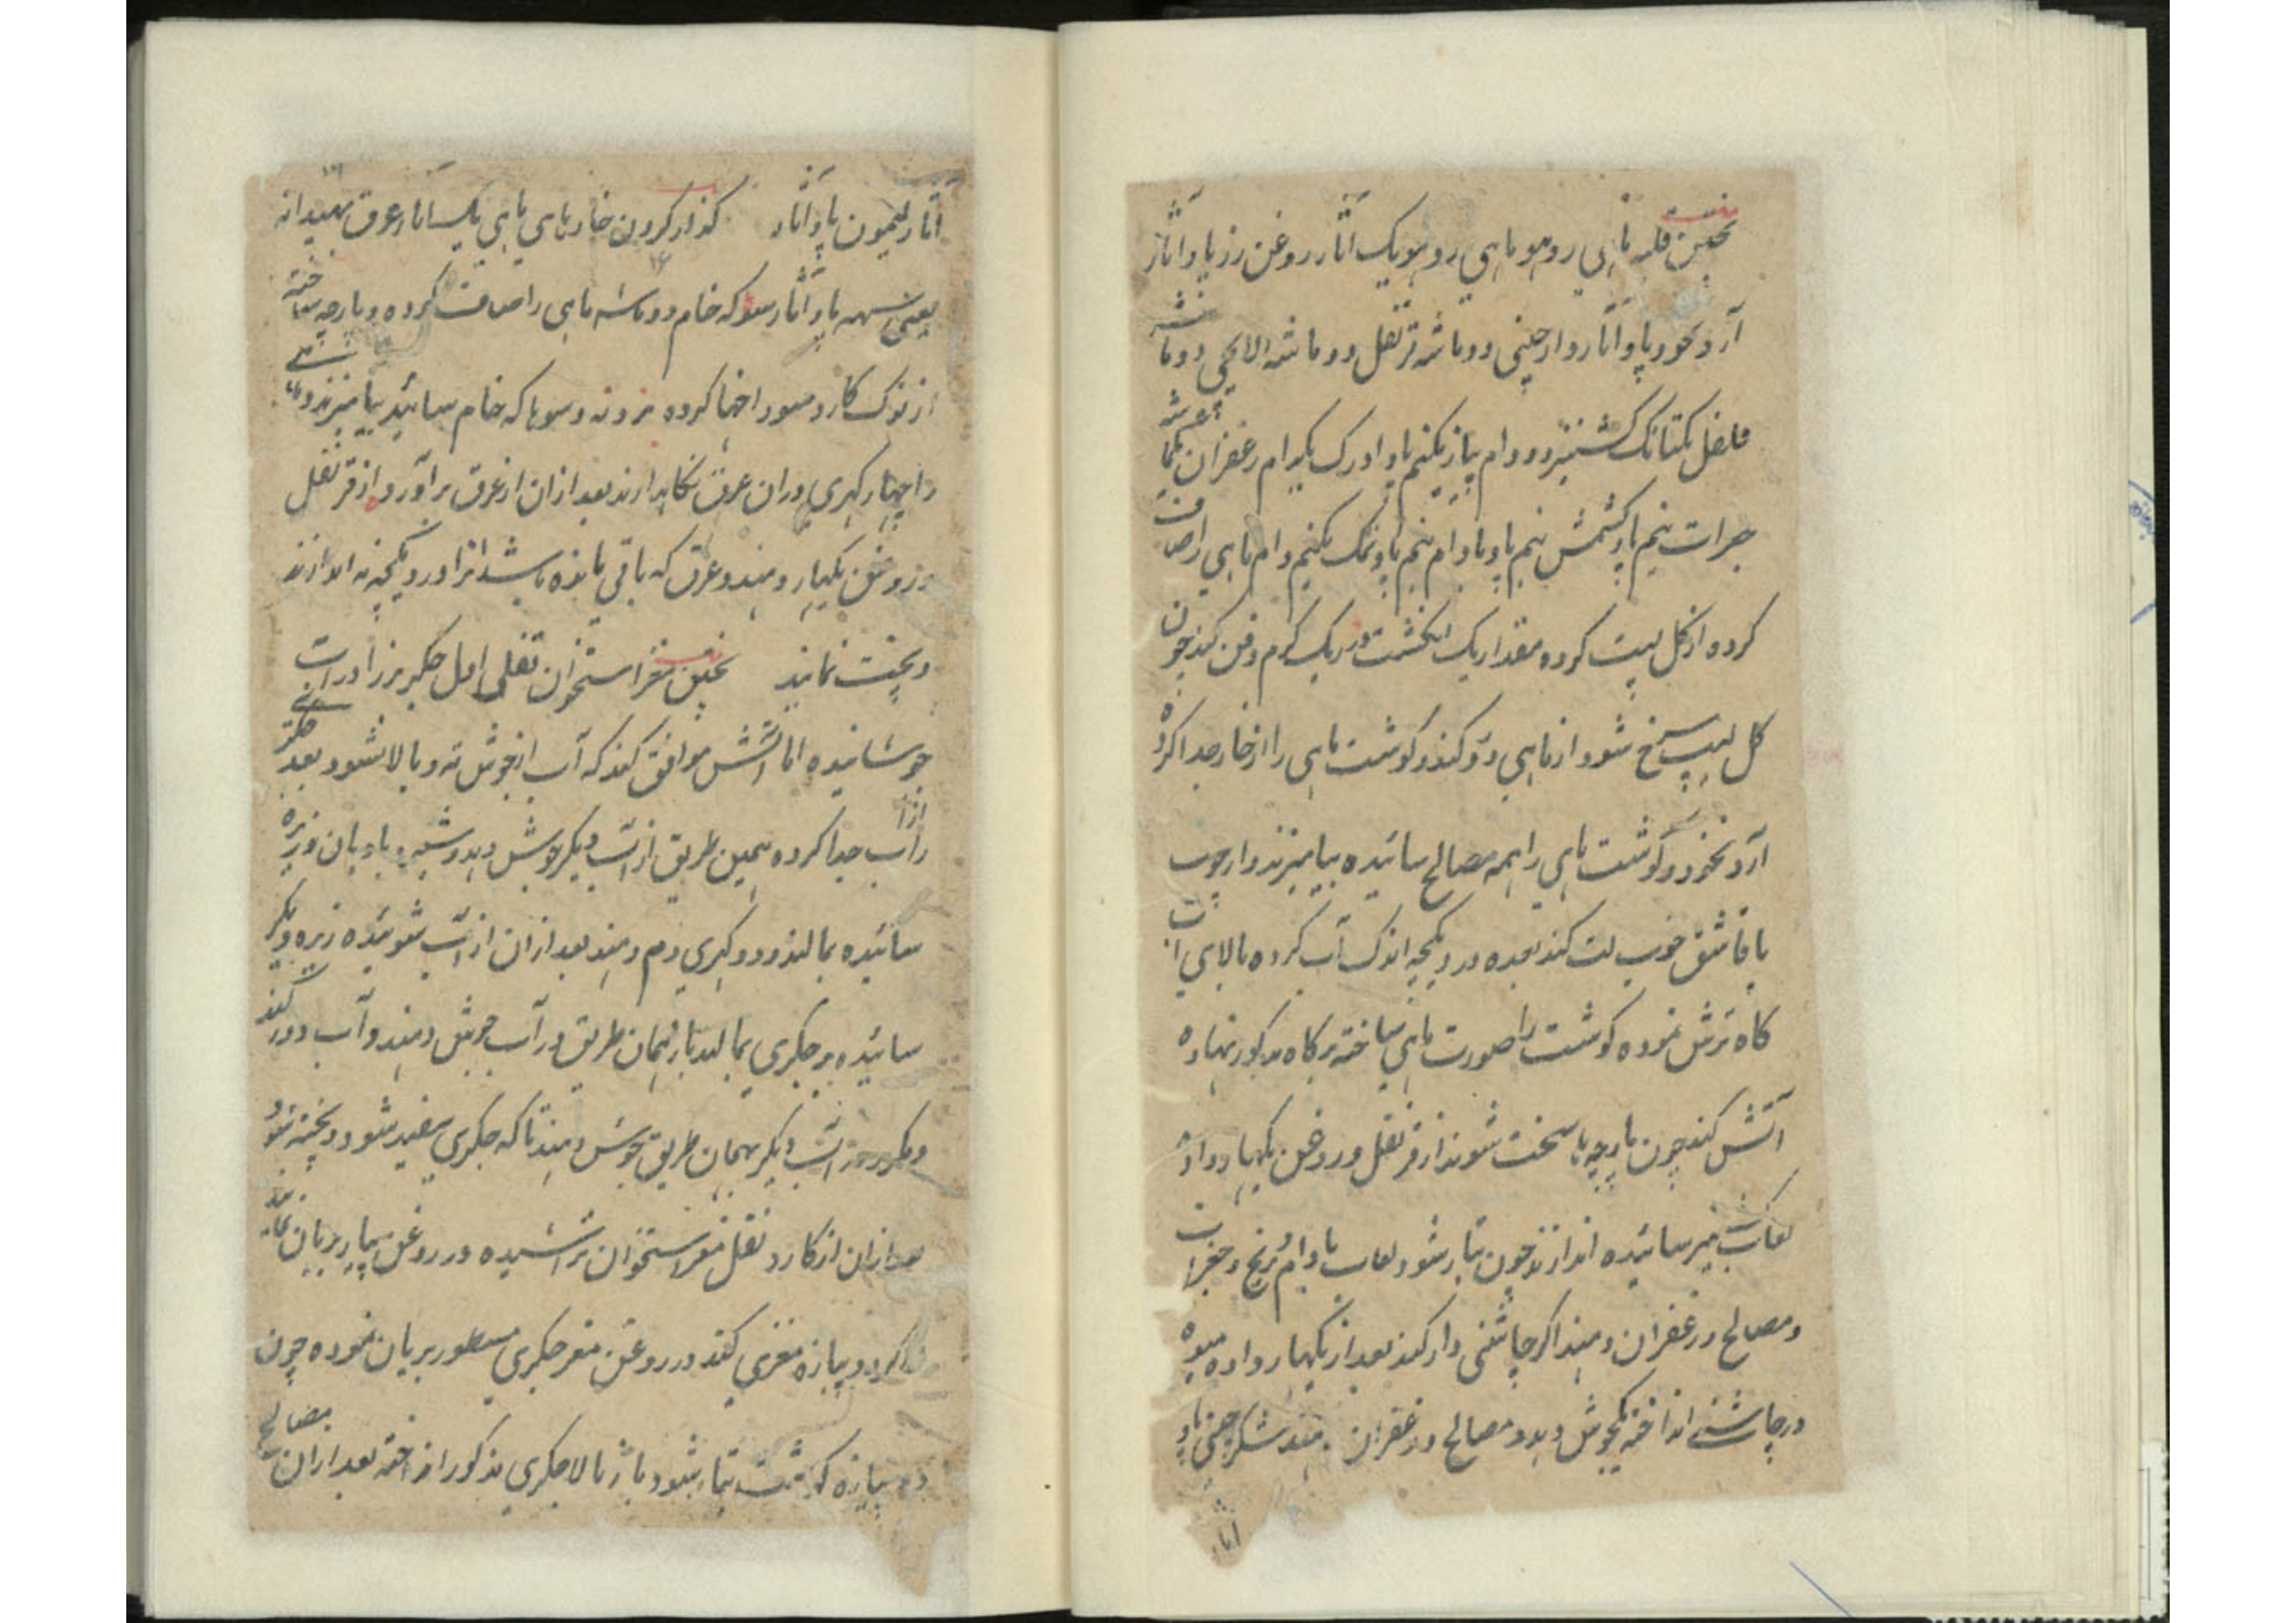 پختن قلیه ماهی روهو ماهی روهو یک آثار روغن زرد پاو آثار
آرد نخود پاو آثار دارچینی دو ماشه قرنفل دو ماشه الایچی دو ماشه
فلفل یکتانک کشنیز دو دام پیاز نیم پاو ادرک یکدام زعفران یکماشه
جغرات نیم پاو کشمش نیم پاو بادام نیم پاو نمک نیم دام ماهی را صاف
کرده از گل لیپت کرده مقدار یک انگشت در ریک گرم دفن کند چون
گل لیپ سرخ شود از ماهی دور کند و گوشت ماهی را از خار جدا کرده
آرد نخود و گوشت ماهی را همه مصالح سائیده بیامیزند و از چوب
یا قاشق خوب لت کند بعده در دیگچه اندک آب کرده بالای آب
کاه ترش نموده گوشت را صورت ماهی ساخته بر کاه مذکور نهاده
آتش کند چون پارچه ها سخت شوند از قرنفل و روغن بگهار داده
لعاب شیر سائیده اندازند چون تیار شود لعاب بادام برنج و جغرات
و مصالح و زعفران دهند اگر چاشنی دار کند بعد از بگهار داده میوه
در چاشنی انداخته یکجوش دهد و مصالح و زعفران دهند شکر چینی پاو
آثار
آثار لیمون پاو آثار گداز کردن خارهای ماهی یک آثار عرق پهیدانه
یعنی سهه پاو آثار سوهاکه خام دو ماشه ماهی را صاف کرده و پارچه ساخته
از نوک کارد سوراخها کرده نمک و سوهاکه خام سائیده بیامیزند و ماهی
را چهار گهری دران عرق نگاهدارند بعد ازان از عرق برآورده از قرنفل
و روغن بگهار دهند و عرق که باقی مانده باشد انرا در دیگچه اندازند
و پخت نمایند پختن مغز استخوان نقلی اول جگر بز را در آب
جوشانیده اما آتش موافق کند که آب از جوش ته و بالا شود بعد
را از آب جدا کرده بهمین طریق از آب دیگر جوش دهد و بادیان و زیره
سائیده بمالند و دو گهری دم دهند بعد ازان از آب شوئیده زیره دیگر
سائیده بر جگری بمالند باز بهمان طریق در آب جوش دهند و آب دور کند
در آب دیگر بهمان طریق جوش دهند تا که جگری سفید شود و پخته شود
بعد ازان از کارد نقل مغز استخوان تراشیده در روغن بسیار بریان نمایند
اگر دوپیازه مغزی کند در روغن مغز جگری مسطور بریان نموده چون
دوپیازه گوشت تیار شود بالا جگری مذکور انداخته بعد ازان مصالح